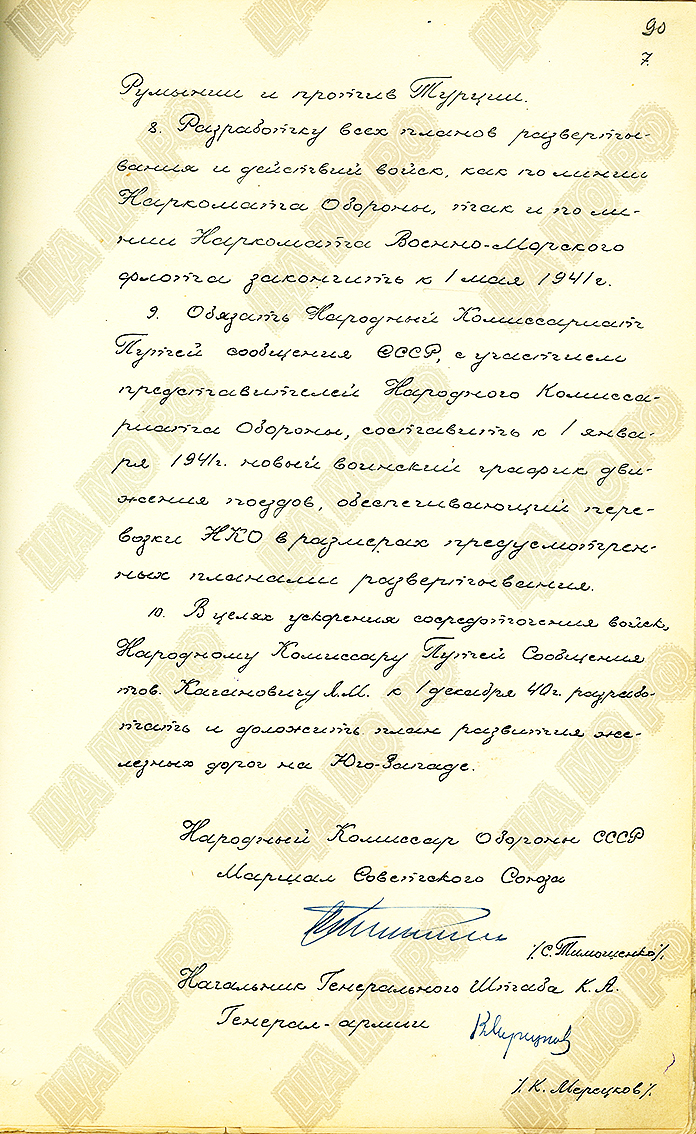 90
7.
Румынии и против Турции.
8. Разработку всех планов развертывы-
вания и действий войск, как по линии
Наркомата Обороны, так и по ли-
нии Наркомата Военно-Морского
флота закончить к 1 мая 1941 г.
9. Обязать Народный Комиссариат
Путей сообщения СССР, с участием
представителей Народного Комисса-
риата Обороны, составить к 1 янва-
ря 1941 г. новый воинский график дви-
жения поездов, обеспечивающий пере-
возки НКО в размерах предусмотрен-
ных планами развертывания.
10. В целях ускорения сосредоточения войск,
Народному Комиссару Путей Сообщения
тов. Кагановичу Л.М. к 1 декабря 40 г. разрабо-
тать и доложить план развития же-
лезных дорог на Юго-Западе.
Народный Комиссар Обороны СССР
Маршал Советского Союза
/С. Тимошенко/.
Начальник Генерального Штаба К.А.
Генерал-армии
К Мерецков
/. К. Мерецков/.
ЦА МО РФ